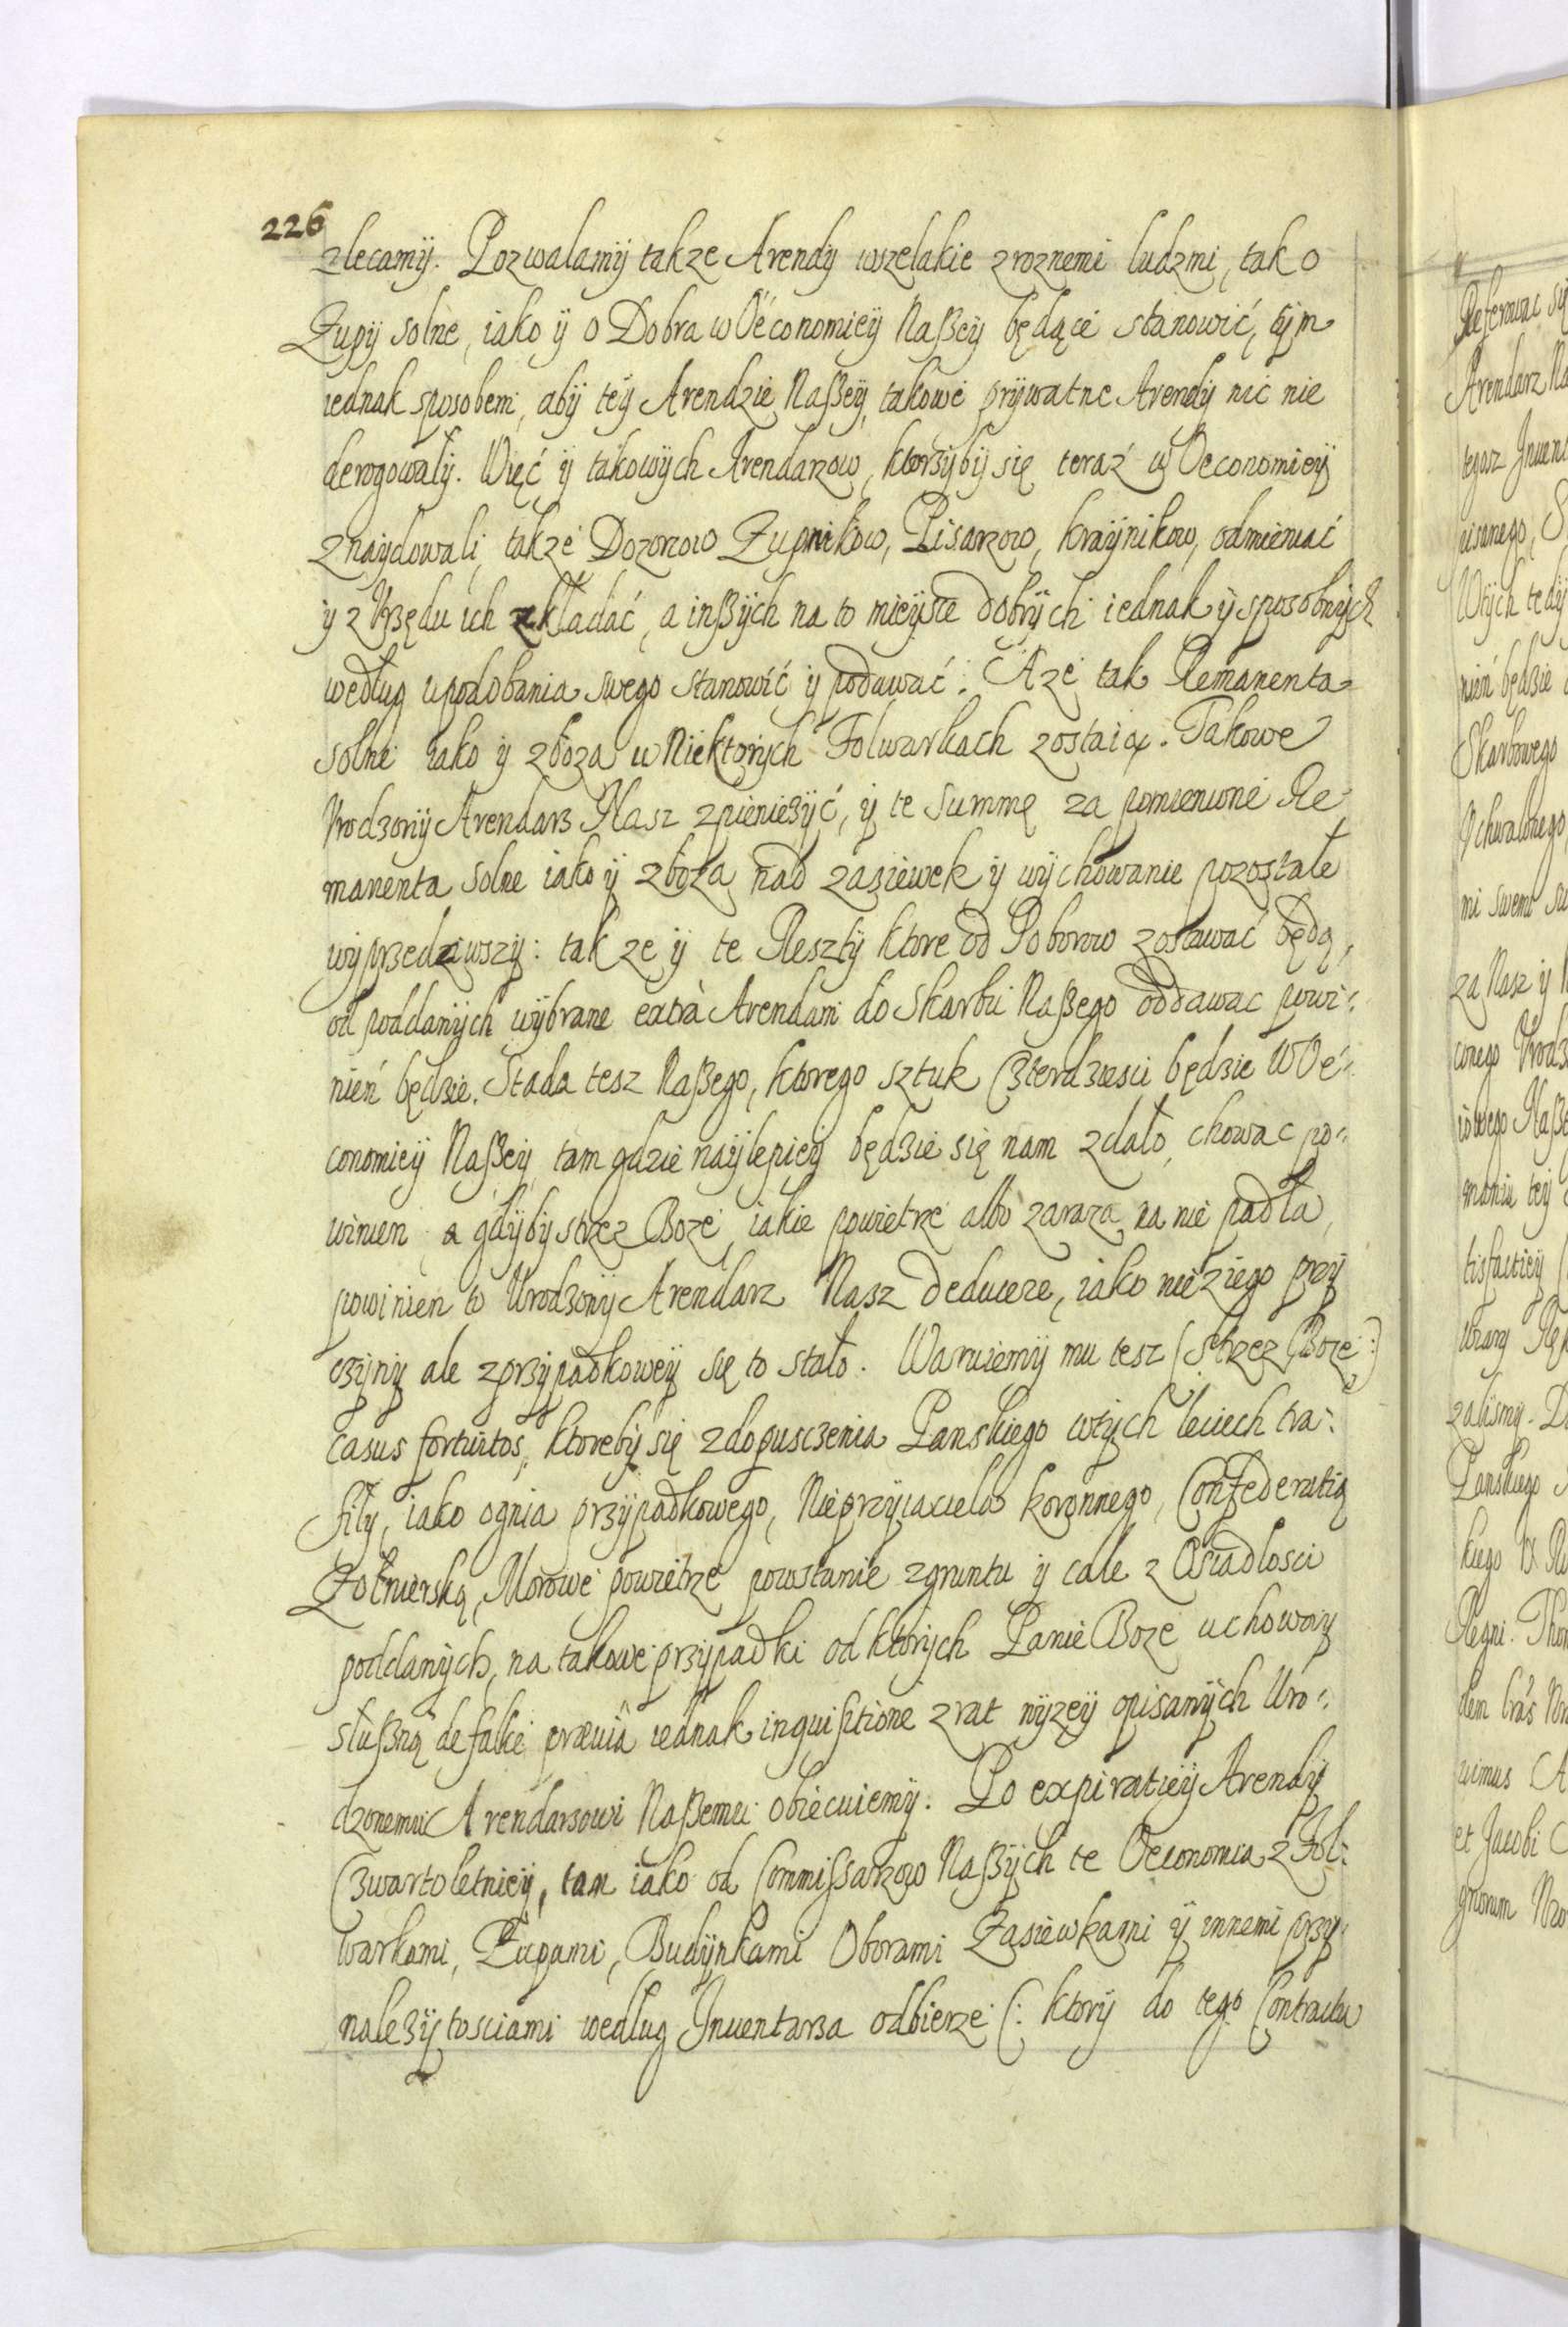 226
zlecamÿ. Pozwalamÿ takze Arendÿ wszelakie z roznemi ludzmi, tak o
Zupÿ solne, iako ÿ o Dobra w Oeconomieÿ Naßeÿ będące stanowić, tÿm
iednak sposobem, abÿ teÿ Arendzie Naßeÿ, takowe prÿwatne Arendÿ nic nie
derogowałÿ. Więć ÿ takowÿch Arendarzow, ktorzÿbÿ się teraz w Oeconomieÿ
znaÿdowali, takze Dozorcow Zupnikow, Pisarzow, kraÿnikow, odmieniać
ÿ z Vrzędu ich zkładać, a inßÿch na to mieÿsce dobrÿch iednak ÿ sposobnÿch
według upodobania swego stanowić ÿ podawać. A ze tak Remanenta
solne iako ÿ zboza w Niektorÿch Folwarkach zostaią. Takowe
Vrodzonÿ Arendarz Nasz zpieniezÿć, ÿ te summę za pomienione Re-
manenta solne iako ÿ zboza nad zasiewek ÿ wÿchowanie pozostałe
wÿprzedawszÿ: tak ze ÿ te Resztÿ ktore od Poborow zostawać będą,
od poddanÿch wÿbrane extrà Arendam do Skarbu Naßego oddawac powi-
nień będzie. Stada tesz Naßego, ktorego sztuk Czterdziesci będzie w Oe-
conomieÿ Naßeÿ, tam gdzie naÿlepieÿ będzie się nam zdało, chowac po-
winien a gdÿbÿ strzez Boze, iakie powietrze albo zaraza na nie padła,
powinien to Urodzonÿ Arendarz Nasz deducere, iako nie z iego przÿ
czÿnÿ ale z przÿpadkoweÿ się to stało. Waruiemÿ mu tesz (: strzez Boze :)
Casus fortuitos, ktorebÿ się z dopuszczenia Panskiego w tÿch leciech tra-
fiłÿ, iako ognia przÿpadkowego, Nieprzÿiaciela koronnego, Confederatią
Zołnierską, Morowe powietrze powstanie z gruntu ÿ cale z Osiadłosci
poddanÿch, na takowe przÿpadki od ktorÿch Panie Boze uchowaÿ
słußną defalkę præuiâ iednak inquisitione z rat nÿzeÿ opisanÿch Uro-
dzonemu Arendarzowi Naßemu obiecuiemÿ. Po expiratieÿ Arendÿ
Czwartoletnieÿ, tak iako od Commissarzow Naßÿch te Oeconomia z Fol-
warkami, Zupami, Budÿnkami Oborami Zasiewkami ÿ innemi przÿ-
nalezÿtosciami według Jnuentarza odbierze (: ktorÿ do tego Contractu